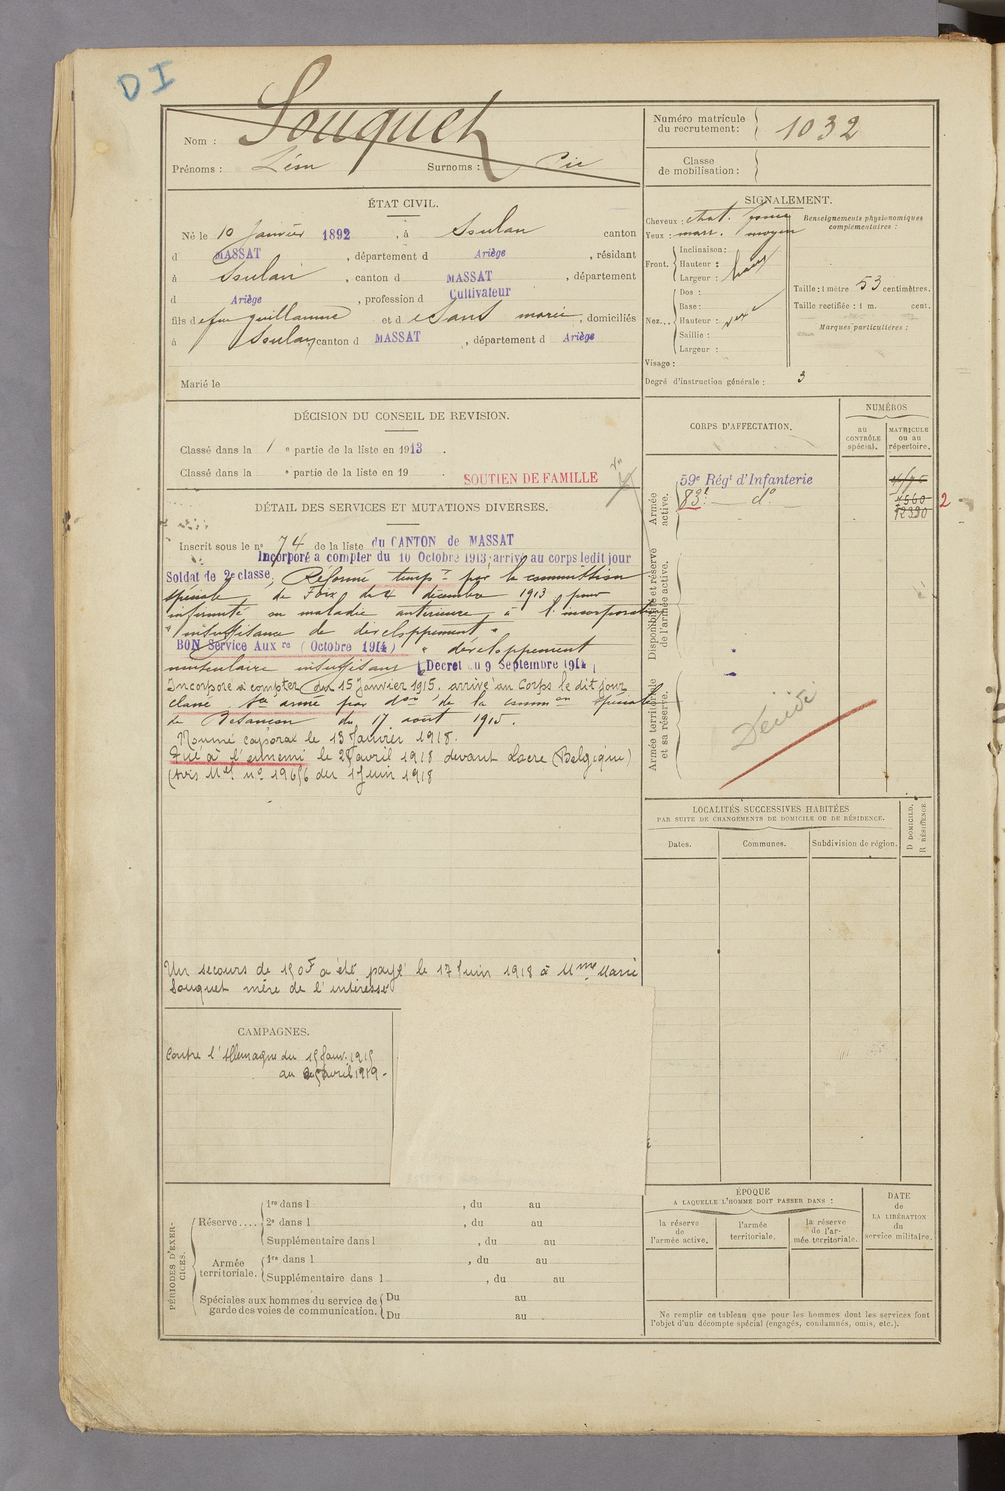 DI
Nom : Souquet
Prénoms : Léon Surnoms : Pic
Numéro matricule
du recrutement : 1032
Classe
de mobilisation :
ÉTAT CIVIL.
Né le 10 Janvier 1892, à Soulan canton
d MASSAT, département d Ariège, résidant
à Soulan, canton d MASSAT, département
d Ariège, profession d Cultivateur
fils de feu Guillaume et de Sans marie, domiciliés
à Soulan, canton d MASSAT, département d Ariège
Marié le
SIGNALEMENT.
Cheveux : chat.
Yeux : marr. moyen
Front.
Inclinaison :
Hauteur :
Largeur :
Nez...
Dos :
Base :
Hauteur :
Saillie :
Largeur :
Visage :
Degré d'instruction générale : 3
Renseignements physionomiques
complémentaires :
Taille : 1 mètre 53 centimètres.
Taille rectifiée : 1 m. cent.
Marques particulières :
DÉCISION DU CONSEIL DE REVISION.
Classé dans la 1 e partie de la liste en 1913.
Classé dans la e partie de la liste en 19 .
SOUTIEN DE FAMILLE
DÉTAIL DES SERVICES ET MUTATIONS DIVERSES.
Inscrit sous le nº 74 de la liste du CANTON de MASSAT
Incorporé à compter du 10 Octobre 1913, arrivé au corps ledit jour
Soldat de 2e classe, Réformé temp.re par la commission
spéciale de Foix du 4 décembre 1913 pour
infirmité ou maladie antérieure à l'incorporation
"insuffisance de développement"
BON Service Auxre (Octobre 1914) " développement
musculaire insuffisant (Decret du 9 Septembre 1914)
Incorporé à compter du 15 Janvier 1915. arrivé au Corps le dit jour
classé sce armé par don de la common spéciale
de Besançon du 17 août 1915.
Nommé caporal le 13 Janvier 1918.
Tué à l'ennemi le 29 avril 1918 devant Locre (Belgique)
(Avis Mel nº 19656 du 1 Juin 1918
Un secours de 150F a été payé le 17 Juin 1918 à Mme Marie
Souquet mère de l'intéressé
CORPS D'AFFECTATION.
NUMÉROS
au
CONTRÔLE
spécial.
MATRICULE
ou au
répertoire.
Armée
active.
59e Régt d'Infanterie
83e — do
4560
12390
2
Disponibilité et réserve
de l'armée active.
Armée territoriale
et sa réserve.
Décédé
LOCALITÉS SUCCESSIVES HABITÉES
PAR SUITE DE CHANGEMENTS DE DOMICILE OU DE RÉSIDENCE.
Dates.
Communes.
Subdivision de région.
D DOMICILE.
R RÉSIDENCE.
CAMPAGNES.
Contre l'Allemagne du 15 Janv. 1915
au 29 avril 1918 -
PÉRIODES D'EXER-
CICES.
Réserve....
1re dans l , du au
2e dans l , du au
Supplémentaire dans l , du au
Armée
territoriale.
1re dans l , du au
Supplémentaire dans l , du au
Spéciales aux hommes du service de
garde des voies de communication.
Du au
Du au
ÉPOQUE
A LAQUELLE L'HOMME DOIT PASSER DANS :
la réserve
de
l'armée active.
l'armée
territoriale.
la réserve
de l'ar-
mée territoriale.
DATE
de
LA LIBÉRATION
du
service militaire.
Ne remplir ce tableau que pour les hommes dont les services font
l'objet d'un décompte spécial (engagés, condamnés, omis, etc.).